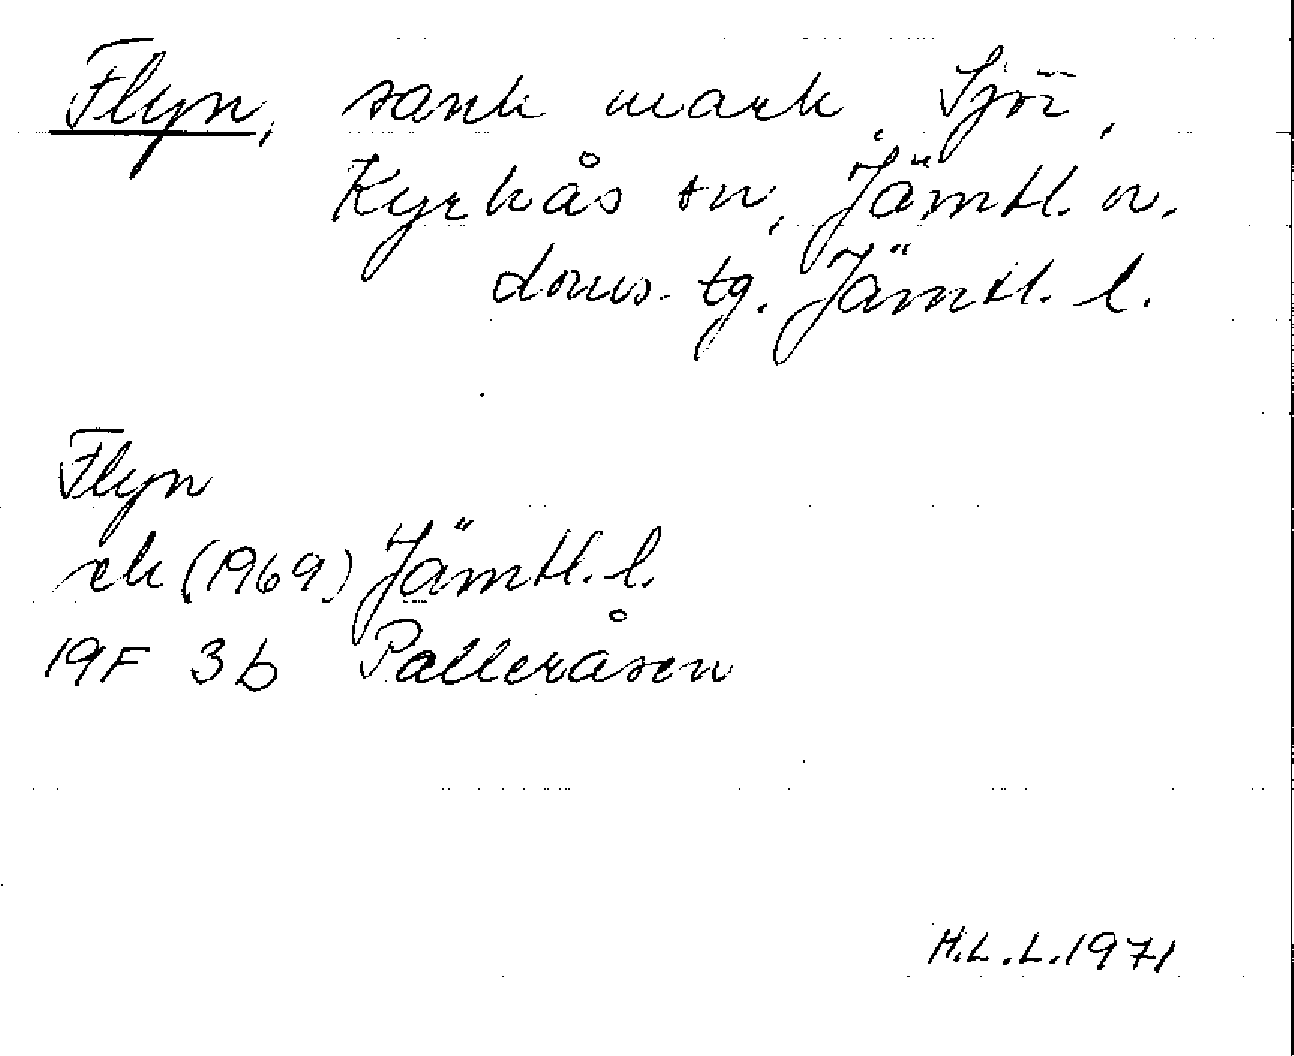 Flyn, sank mark, Sjör,
Kyrkås sn, Jämtl. n.
doms. tg. Jämtl. l.
Flyn
ek (1969) Jämtl. l.
19F 3b Palleråsen
H.L.L. 1971